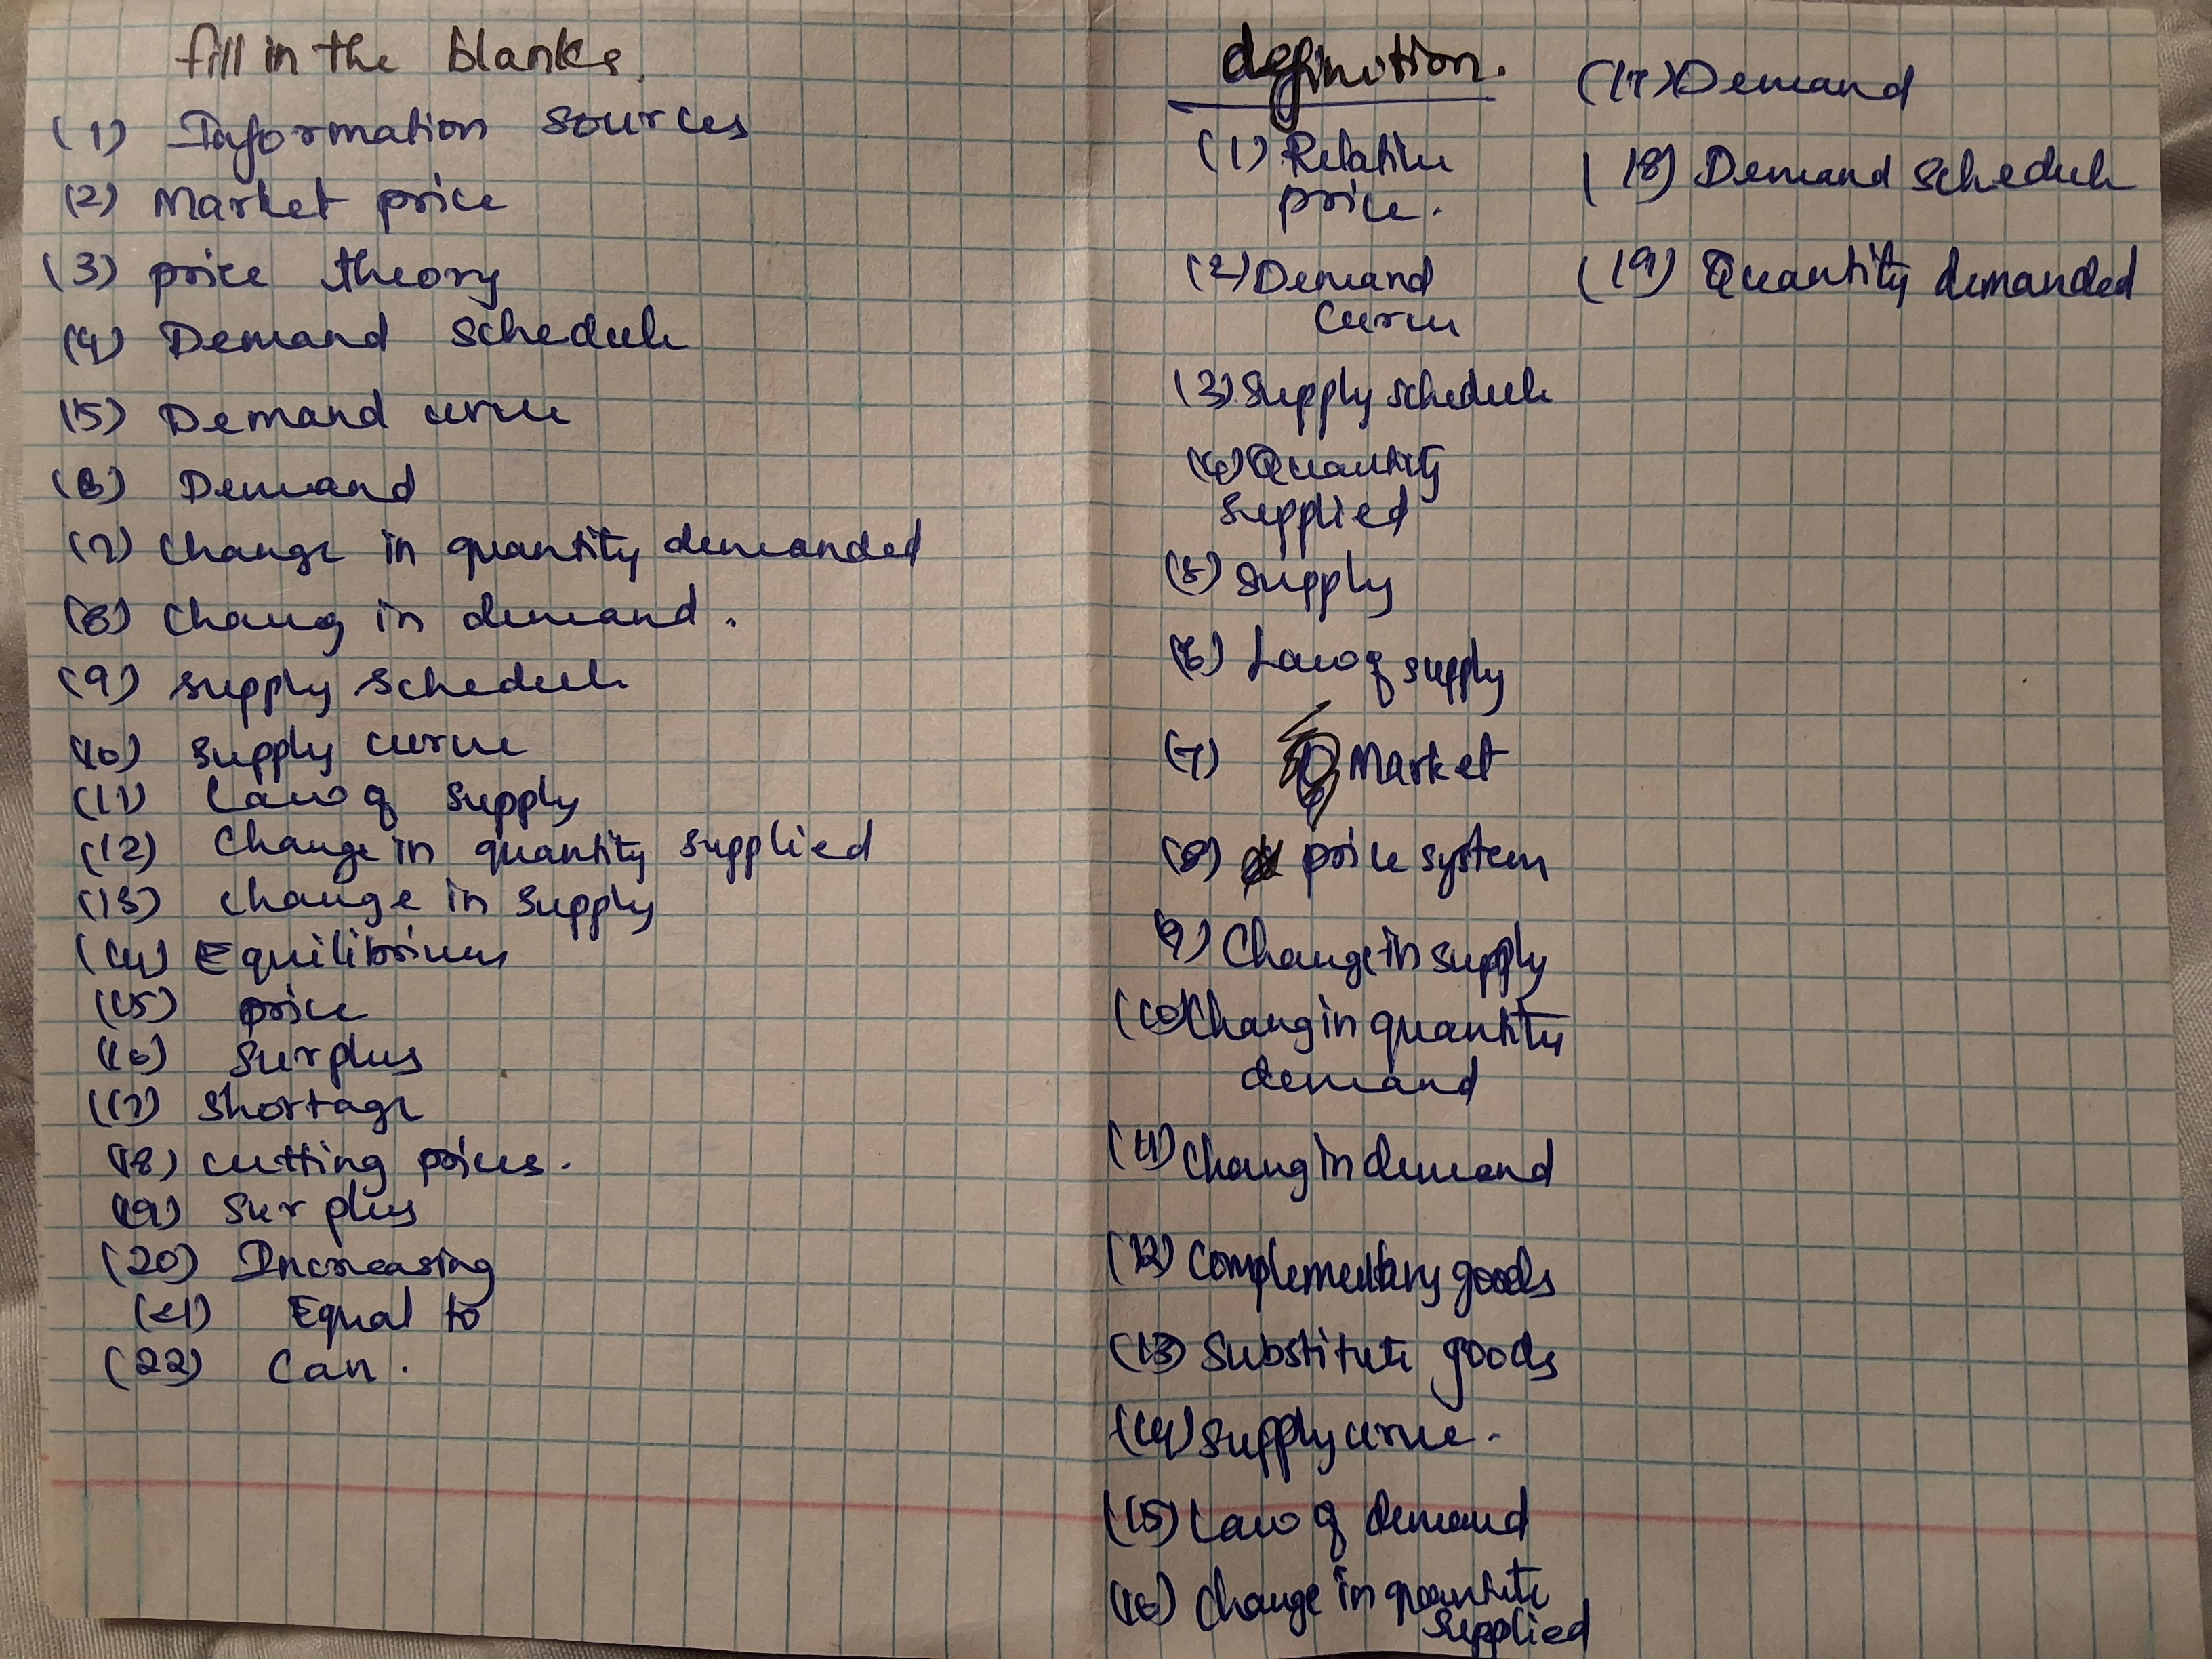 fill in the blanks.
(1) Information sources
(2) Market price
(3) price theory
(4) Demand schedule
(5) Demand curve
(6) Demand
(7) Change in quantity demanded
(8) Chang in demand.
(9) supply schedule
(10) supply curve
(11) Law of supply
(12) Change in quantity supplied
(13) change in supply
(14) Equilibrium
(15) price
(16) surplus
(17) shortage
(18) cutting prices.
(19) surplus
(20) Increasing
(21) Equal to
(22) Can.
definition.
(1) Relative
price.
(2) Demand
Curve
(3) Supply schedule
(4) Quantity
supplied
(5) supply
(6) Law of supply
(7) Market
(8) price system
9) Change in supply
(10) Chang in quantity
demand
(11) Chang in demand
(12) Complementary goods
(13) Substitute goods
(14) supply curve.
(15) Law of demand
(16) change in quantite
supplied
(17) Demand
(18) Demand schedule
(19) Quantity demanded